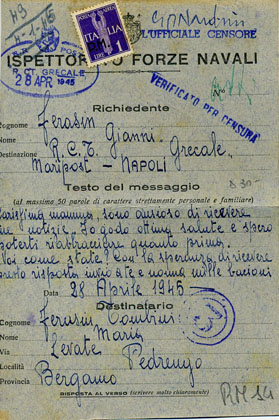 49
4-1-46
L'UFFICIALE CENSORE
R. CT. GRECALE
28 APR 1945
ISPETTORATO FORZE NAVALI
VERIFICATO PER CENSURA
Richiedente
Cognome Ferasin
Nome Gianni
Destinazione R.C.T. "Grecale"
Maripost - NAPOLI
Testo del messaggio
(al massimo 50 parole di carattere strettamente personale e familiare)
Carissima mamma, sono ansioso di ricevere
tue notizie. Io godo ottima salute e spero
poterti riabbracciare quanto prima.
Voi come state? Con la speranza di ricevere
presto risposta invio a te e nonna mille bacioni
Data 28 Aprile 1945
Destinatario
Cognome Ferasin
Nome Maria
Via
Località Levate Pedrengo
Provincia Bergamo
RISPOSTA AL VERSO (scrivere molto chiaramente)